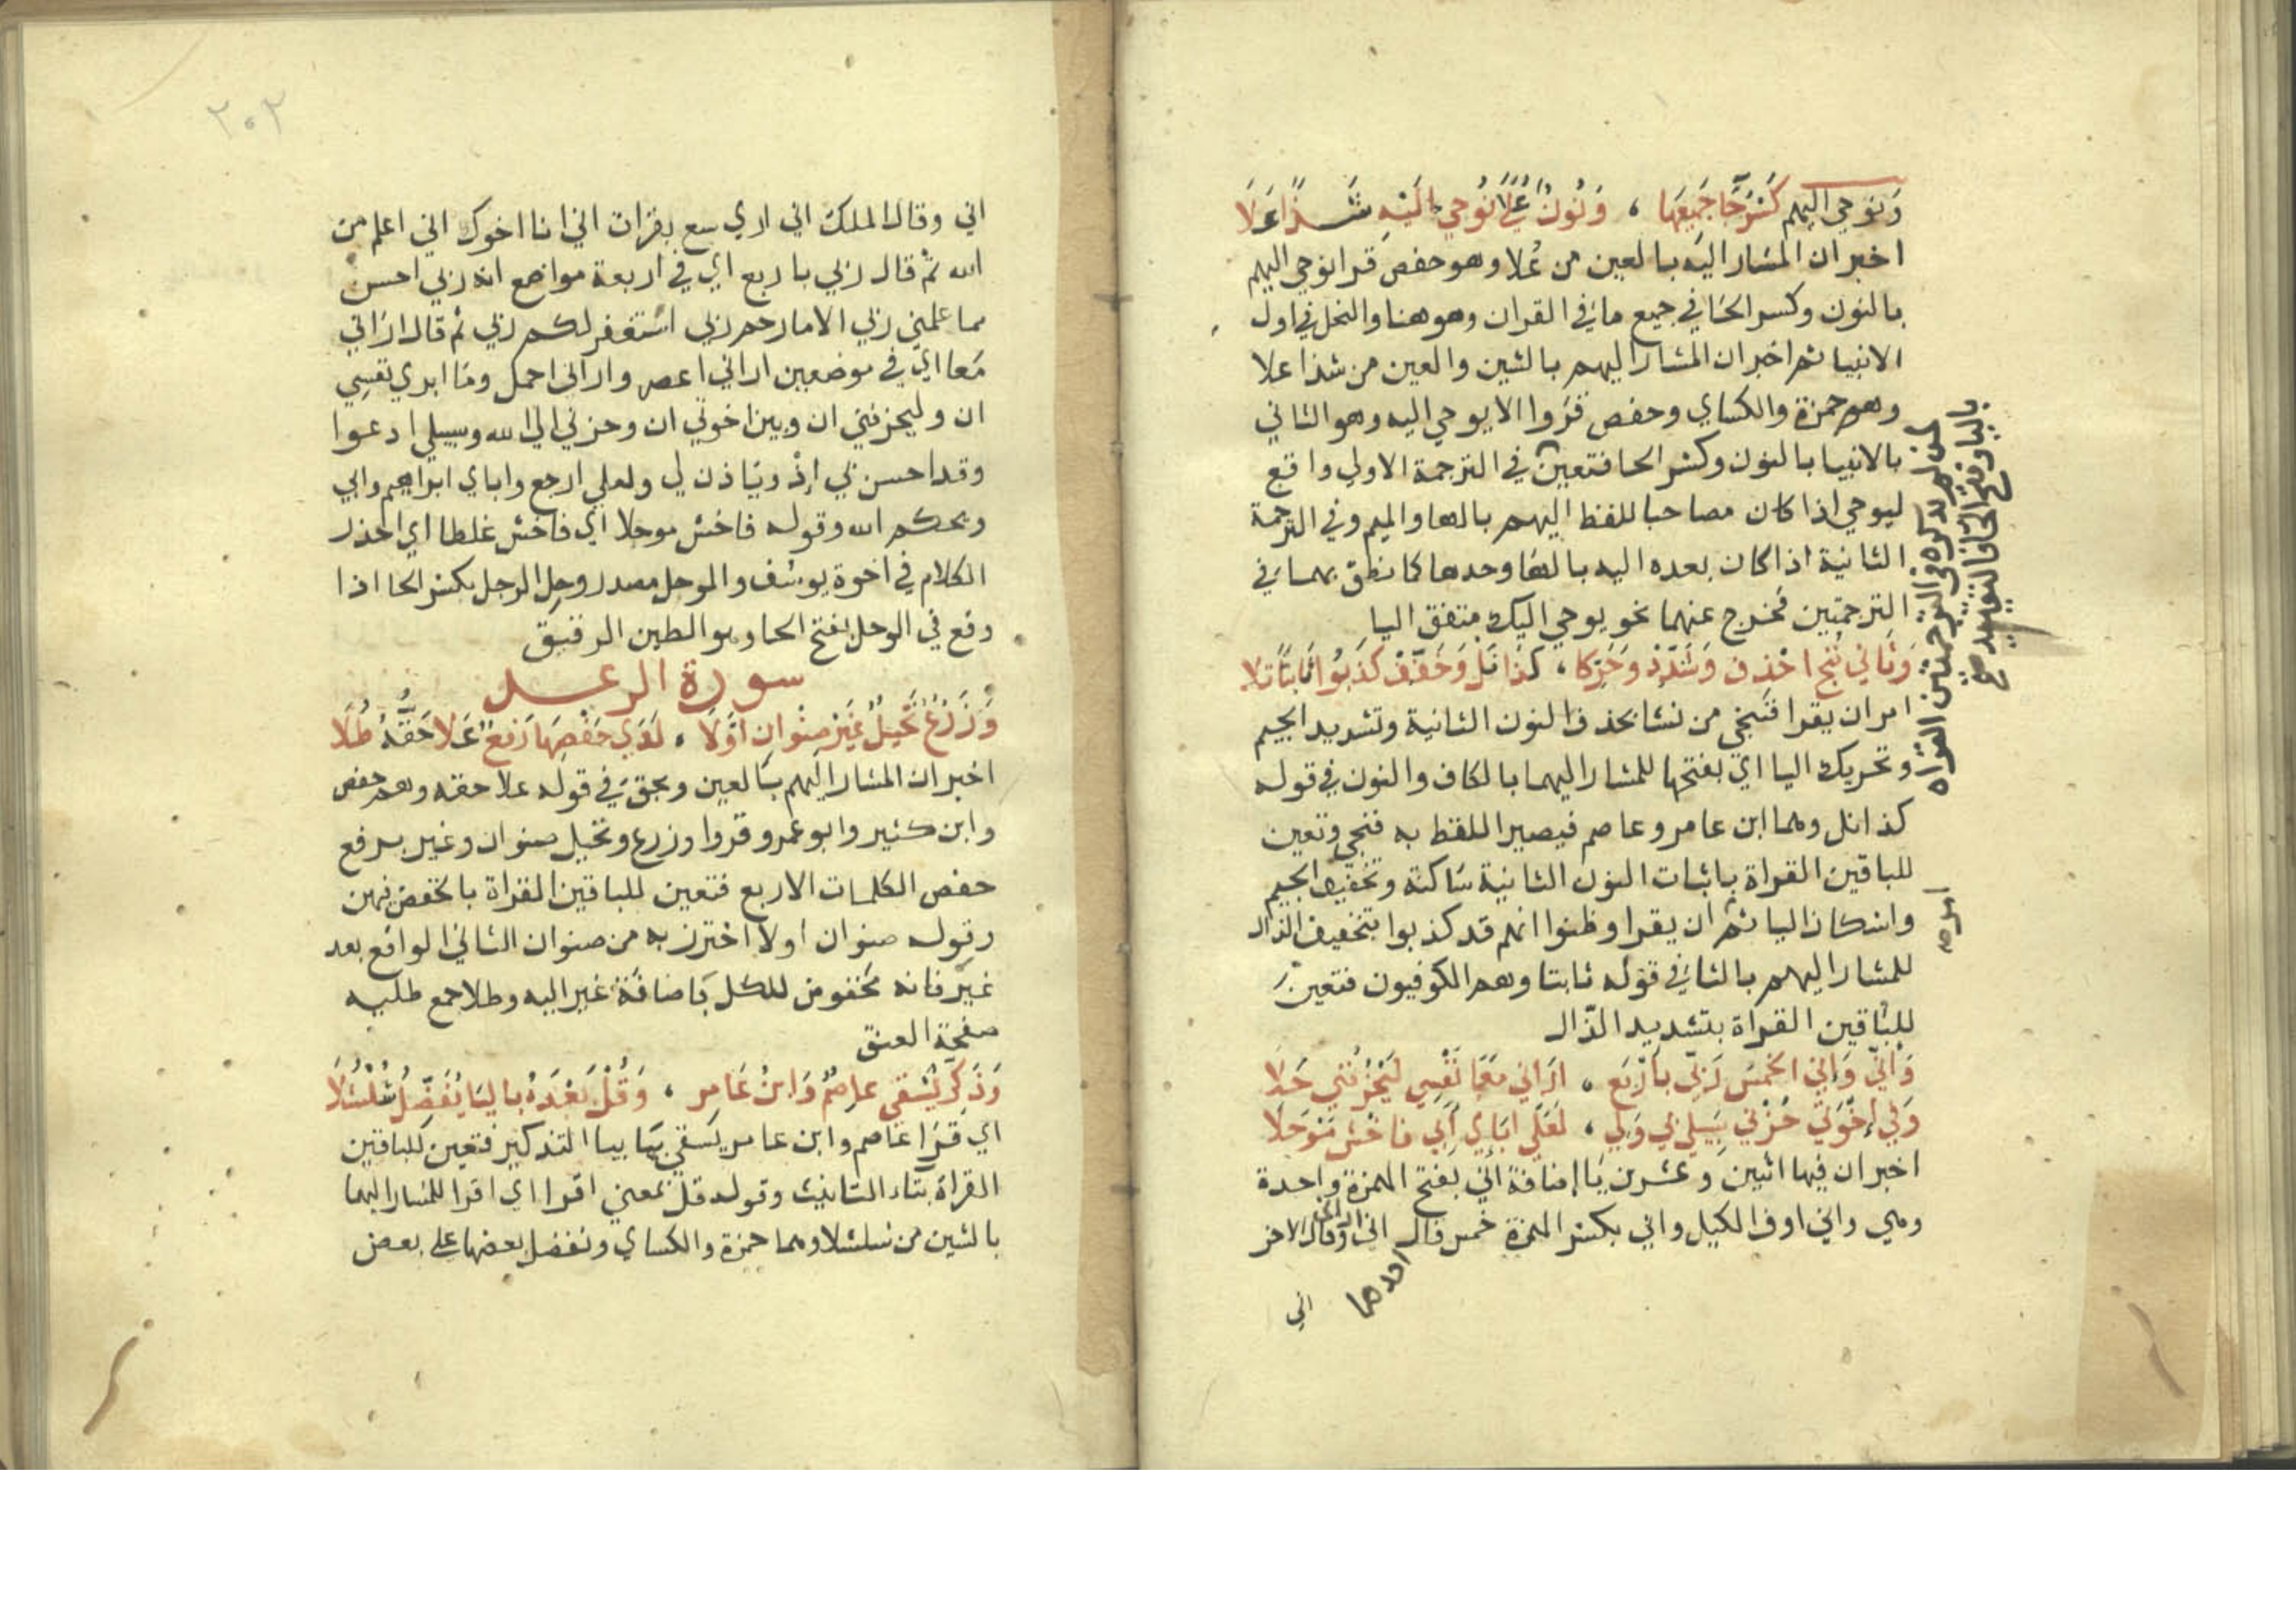 ونوحي اليهم كسر حا جميعها ، ونون علا نوحي اليه شذا علا
اخبر ان المشار اليه بالعين من علا وهو حفص قرا نوحي اليهم
بالنون وكسر الحا في جميع ما في القران وهو هنا والنحل في اول
الانبيا ثم اخبر ان المشار اليهم بالشين والعين من شذا علا
وهم حمزة والكساي وحفص قروا الا يوحي اليه وهو الثاني
بالانبيا بالنون وكسر الحا فتعين في الترجمة الاولي واقع
ليوحي اذا كان مصاحبا للفظ اليهم بالها والميم وفي الترجمة
الثانية اذا كان بعده اليه بالها وحدها كما نطق بهما في
الترجمتين فخرج عنهما نحو يوحي اليك متفق اليا
وثاني ننج احذف وشدد وحركا ، كذا نل وخفف كذبوا ثابتا تلا
امر ان يقرا فنجي من نشا بحذف النون الثانية وتشديد الجيم
وتحريك اليا اي بفتحها للمشار اليهما بالكاف والنون في قوله
كذا نل وهما ابن عامر وعاصم فيصير اللفظ به فنجي وتعين
للباقين القراة باثبات النون الثانية ساكنة وتخفيف الجيم
واسكان اليا ثم ان يقرا وظنوا انهم قد كذبوا بتخفيف الذال
للمشار اليهم بالثا في قوله ثابتا وهم الكوفيون فتعين
للباقين القراة بتشديد الذال
واني واني الخمس ربي باربع ، اراني معا نفسي ليحزنني حلا
وفي اخوتي حزني سبيلي بي ولي ، لعلي اباي ابي فاخش موحلا
اخبر ان فيها اثنين وعشرين يا اضافة اني بفتح الهمزة واحدة
وهي واني اوف الكيل واني بكسر الهمزة خمس قال اني اراني وقال الاخر
احدهما
اني
بالياء وفتح الحا فالتقييد
لمن لم يذكره في الترجمتين القراه
امر
٢٠٢
اني وقال الملك اني اري سبع بقرات اني انا اخوك اني اعلم من
الله ثم قال ربي باربع اي في اربعة مواضع انه ربي احسن
مما علمني ربي الا ما رحم ربي استغفر لكم ربي ثم قال اراني
معا اي في موضعين اراني اعصر واراني احمل وما ابري نفسي
ان وليحزنني ان وبين اخوتي ان وحزني الي الله وسبيلي ادعوا
وقد احسن بي اذ وياذن لي ولعلي ارجع واباي ابراهيم وابي
ويحكم الله وقوله فاخش موحلا اي فاخش غلطا اي احذر
الكلام في اخوة يوسف والموحل مصدر وحل الرجل بكسر الحا اذا
وقع في الوحل بفتح الحا وهو الطين الرقيق
سورة الرعد
وزرع نخيل غير صنوان اولا ، لدي خفضها رفع علا حقه طلا
اخبر ان المشار اليهم بالعين وبحق في قوله علا حقه وهم حفص
وابن كثير وابو عمرو قروا وزرع ونخيل صنوان وغير برفع
خفض الكلمات الاربع فتعين للباقين القراة بالخفض فيهن
وقوله صنوان اولا احترز به من صنوان الثاني الواقع بعد
غير فانه مخفوض للكل باضافة غير اليه وطلا جمع طليه
صفحة العنق
وذكر يسقي عاصم وابن عامر ، وقل بعده باليا يفضل شلشلا
اي قرا عاصم وابن عامر يسقي بما بيا التذكير فتعين للباقين
القراة بتاء التانيث وقوله قل بمعني اقرا اي اقرا للمشار اليهما
بالشين من شلشلا وهما حمزة والكساي ونفضل بعضها علي بعض